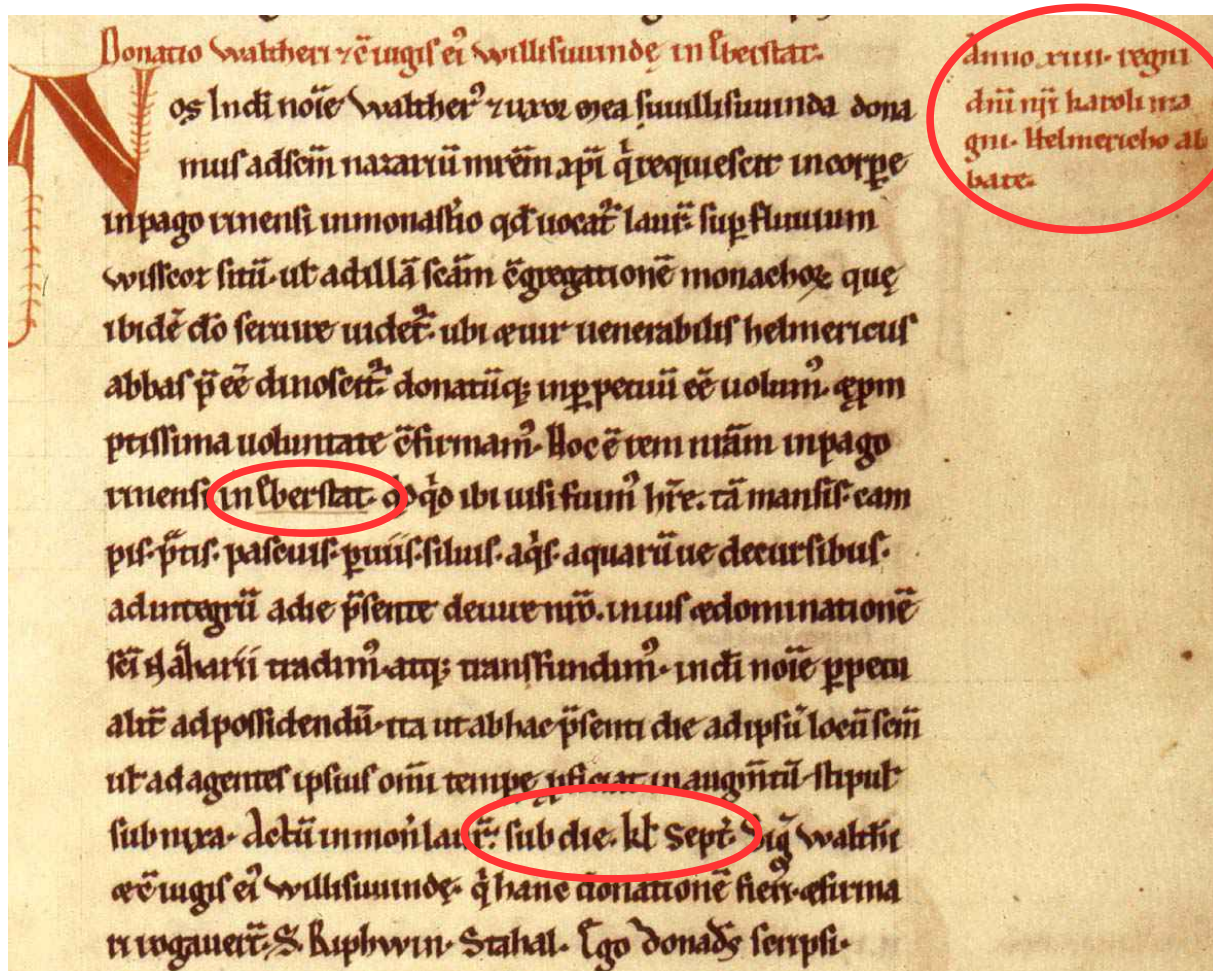 Donatio Waltheri ⁊ cĩugis ei᷒ Willisuuindę in Eberstat.
Anno xiiii. regni
dñi nři karoli ma
gni. Helmericho ab
bate.
Nos Indi noĩe Walther᷒ ⁊ uxor mea suuillisuuinda dona
mus ad scm̃ nazariũ mrẽm xpĩ q̇ requiescit in corpe
in pago rinensi in monastio qd̃ uocat᷑ laur̃. sup fluuium
Wisscoz sitũ. ut ad illã scãm c̃gregationẽ monachoꝝ quę
ibidẽ dõ seruire uidet᷑. ubi & uir uenerabilis helmericus
abbas p̃ eẽ dinoscit᷑. donatũq; in ꝑpetuũ eẽ uolum᷒. & ꝓm
ptissima uoluntate c̃firmam᷒. Hoc ẽ rem nr̃am in pago
rinensi in Eberstat. q̇ ibi uisi sum᷒ hr̃e. tã mansis. cam
pis. p̃tis. pascuis. ꝑuiis. siluis. aq̇s. aquarũue decursibus.
ad integrũ a die p̃sente de iure nr̃o. in ius & dominationẽ
scĩ Nazarii tradim᷒. atq; transfundim᷒. in dĩ noĩe ꝑpetu
alit᷑ ad possidendũ. ita ut ab hac p̃senti die ad ipsũ locũ scm̃
ut ad agentes ipsius om̃i tempe ꝓficiat in augm̃tũ. stipul
subnixa. Actũ in moñ laur̃. sub die. kl Sept. Sig̃ Walthi
& c̃iugis ei᷒ Willisuuindę. q̇ hanc donationẽ fieri & firma
ri rogauer̃t. S. Riphwin. Stahal. Ego Donads̃ scripsi.